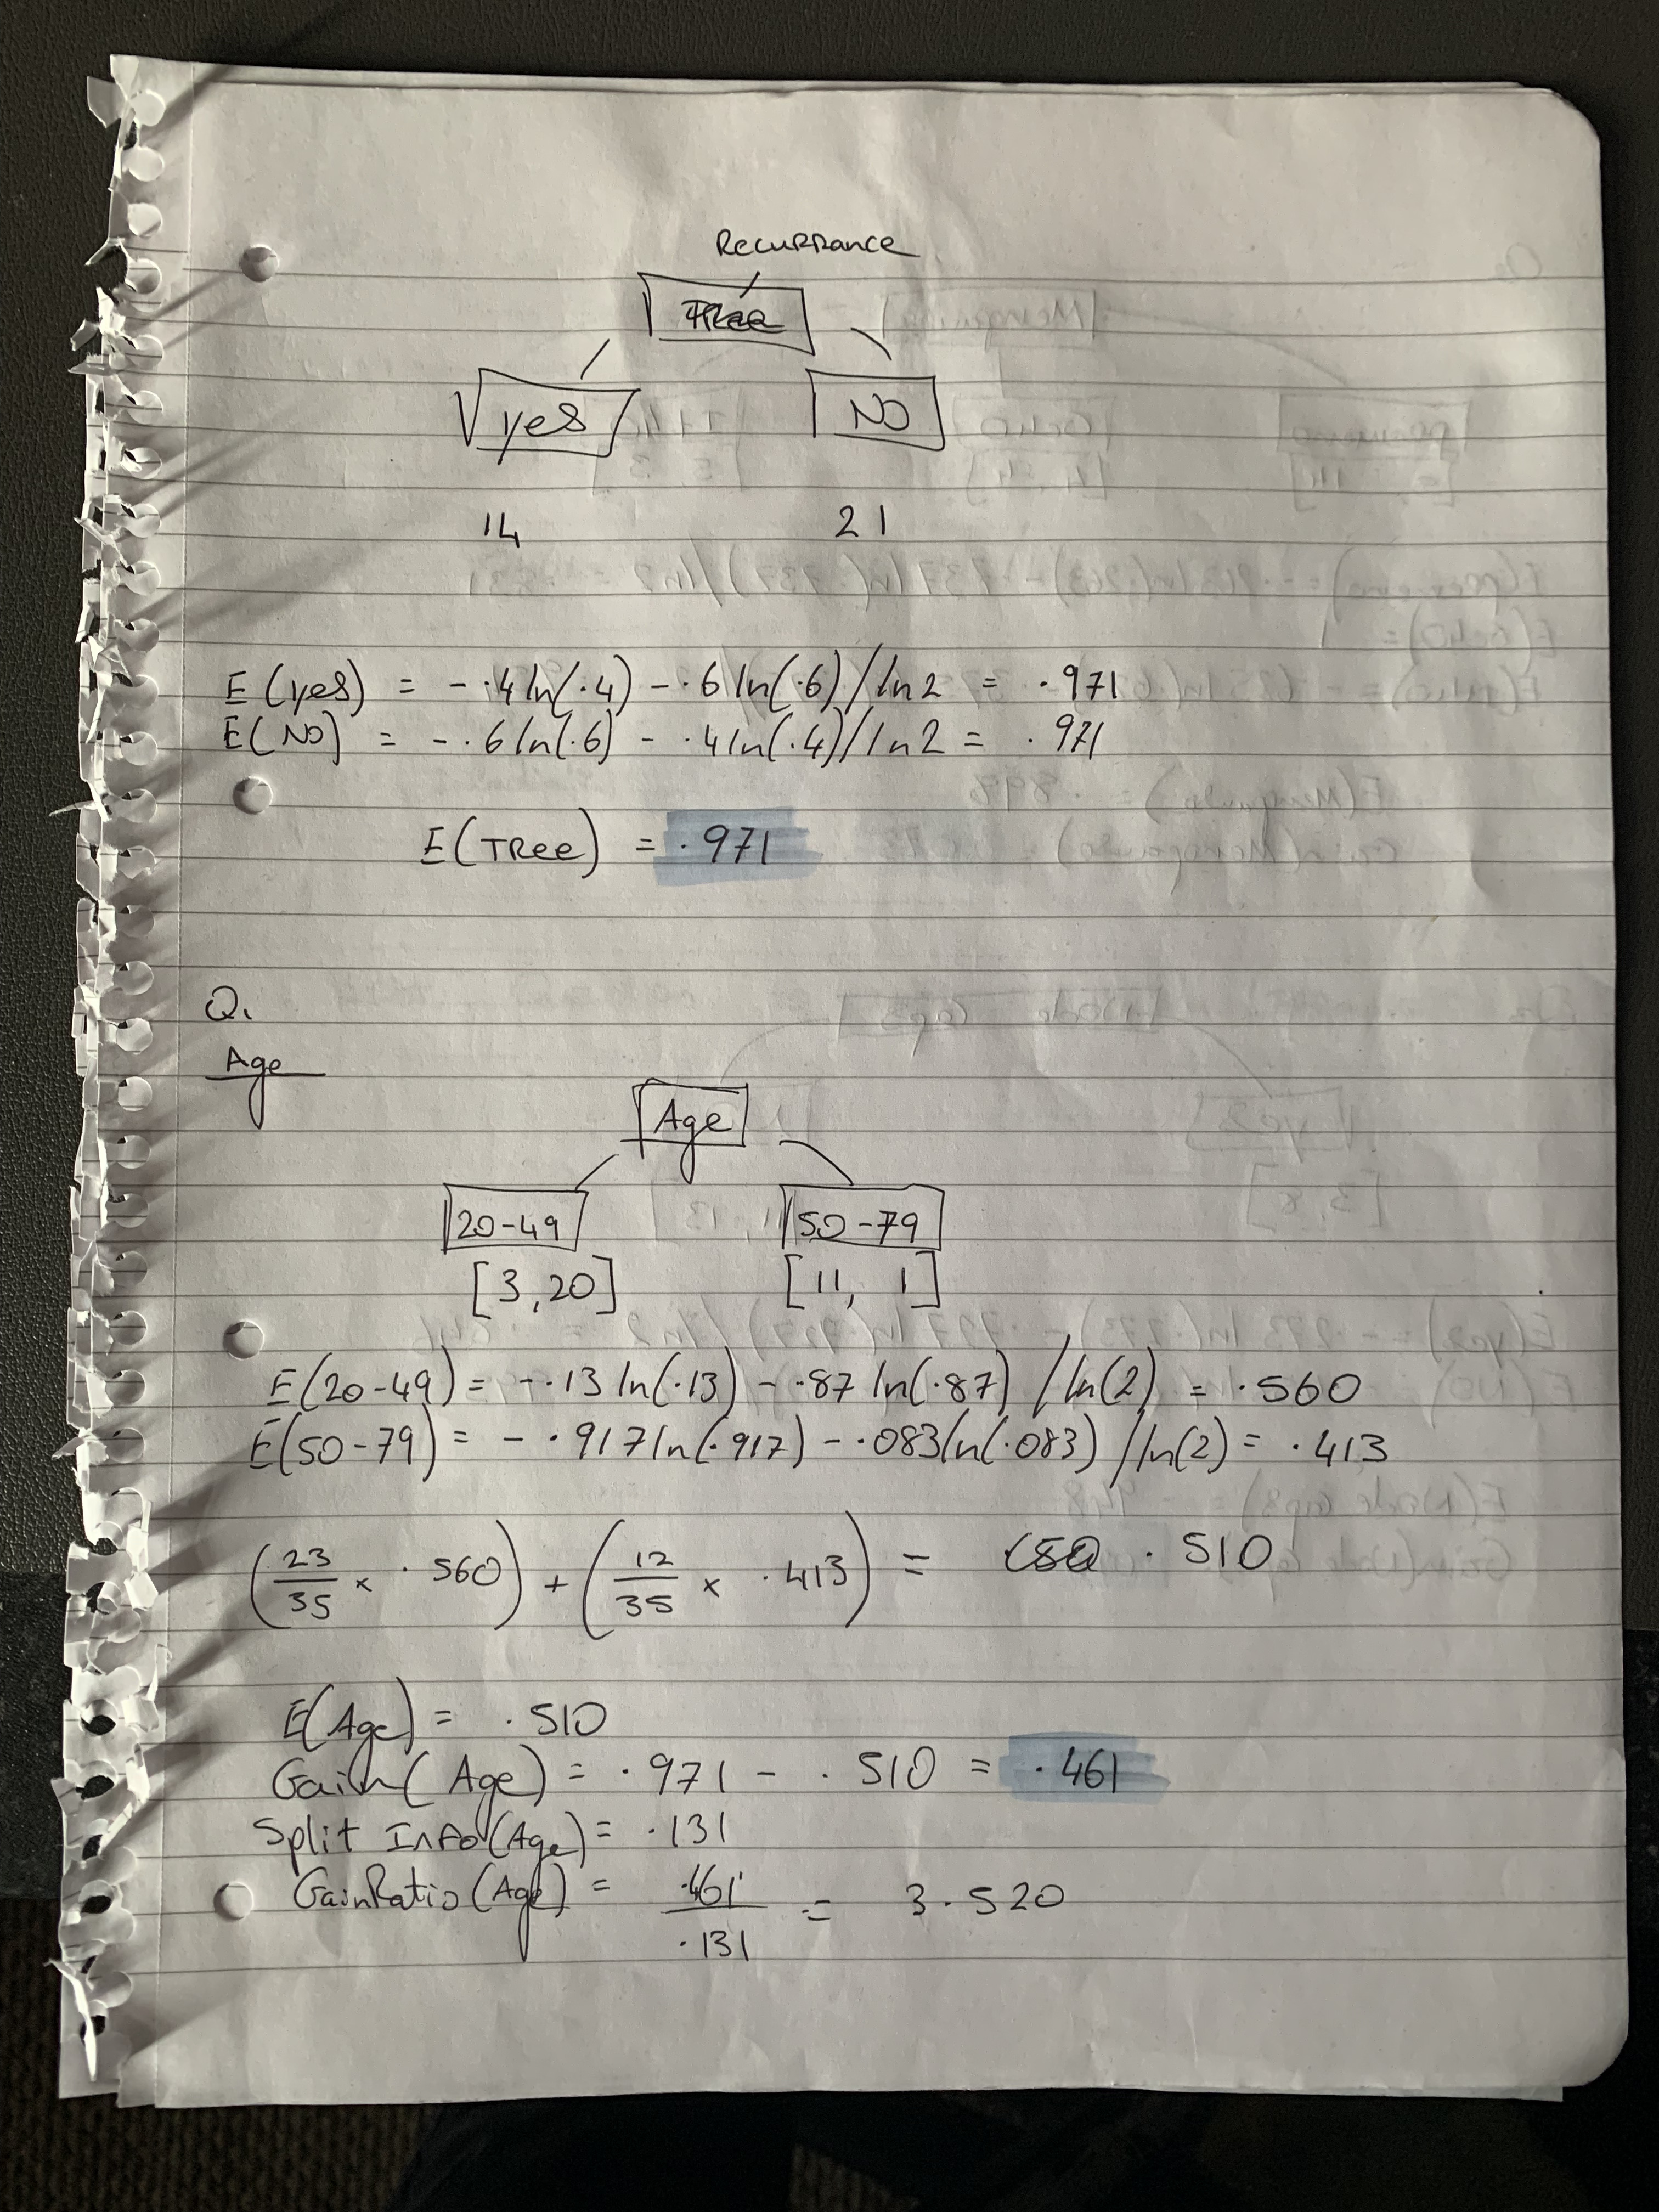 Recurrance
Tree
yes NO
14 21
E(yes) = -.4ln(.4) - .6ln(.6)/ln2 = .971
E(NO) = -.6ln(.6) - .4ln(.4)/ln2 = .971
E(TRee) = .971
Q.
Age
Age
20-49 50-79
[3,20] [11, 1]
E(20-49) = -.13ln(.13) - .87ln(.87)/ln(2) = .560
E(50-79) = -.917ln(.917) - .083ln(.083)/ln(2) = .413
(23/35 x .560) + (12/35 x .413) = .510
E(Age) = .510
Gain(Age) = .971 - .510 = .461
Split Info(Age) = .131
GainRatio(Age) = .461/.131 = 3.520